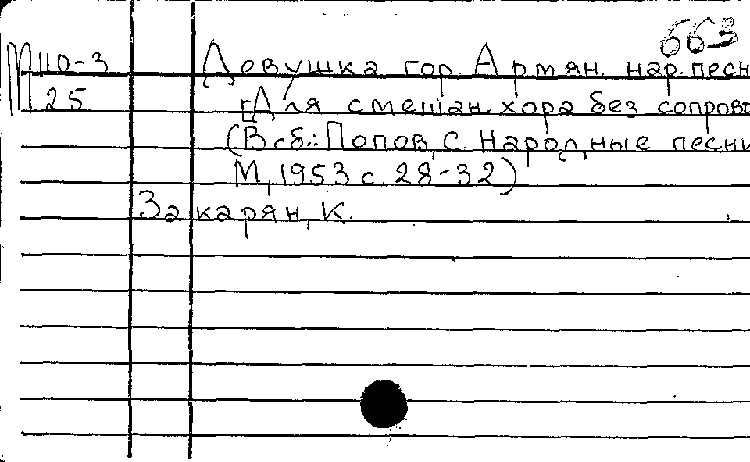 663
М 110-3 Девушка гор. Армян. нар. песн
25 [Для смешан. хора без сопров
(В сб.: Попов, С. Народные песни
М., 1953 с. 28-32)
Закарян, К.